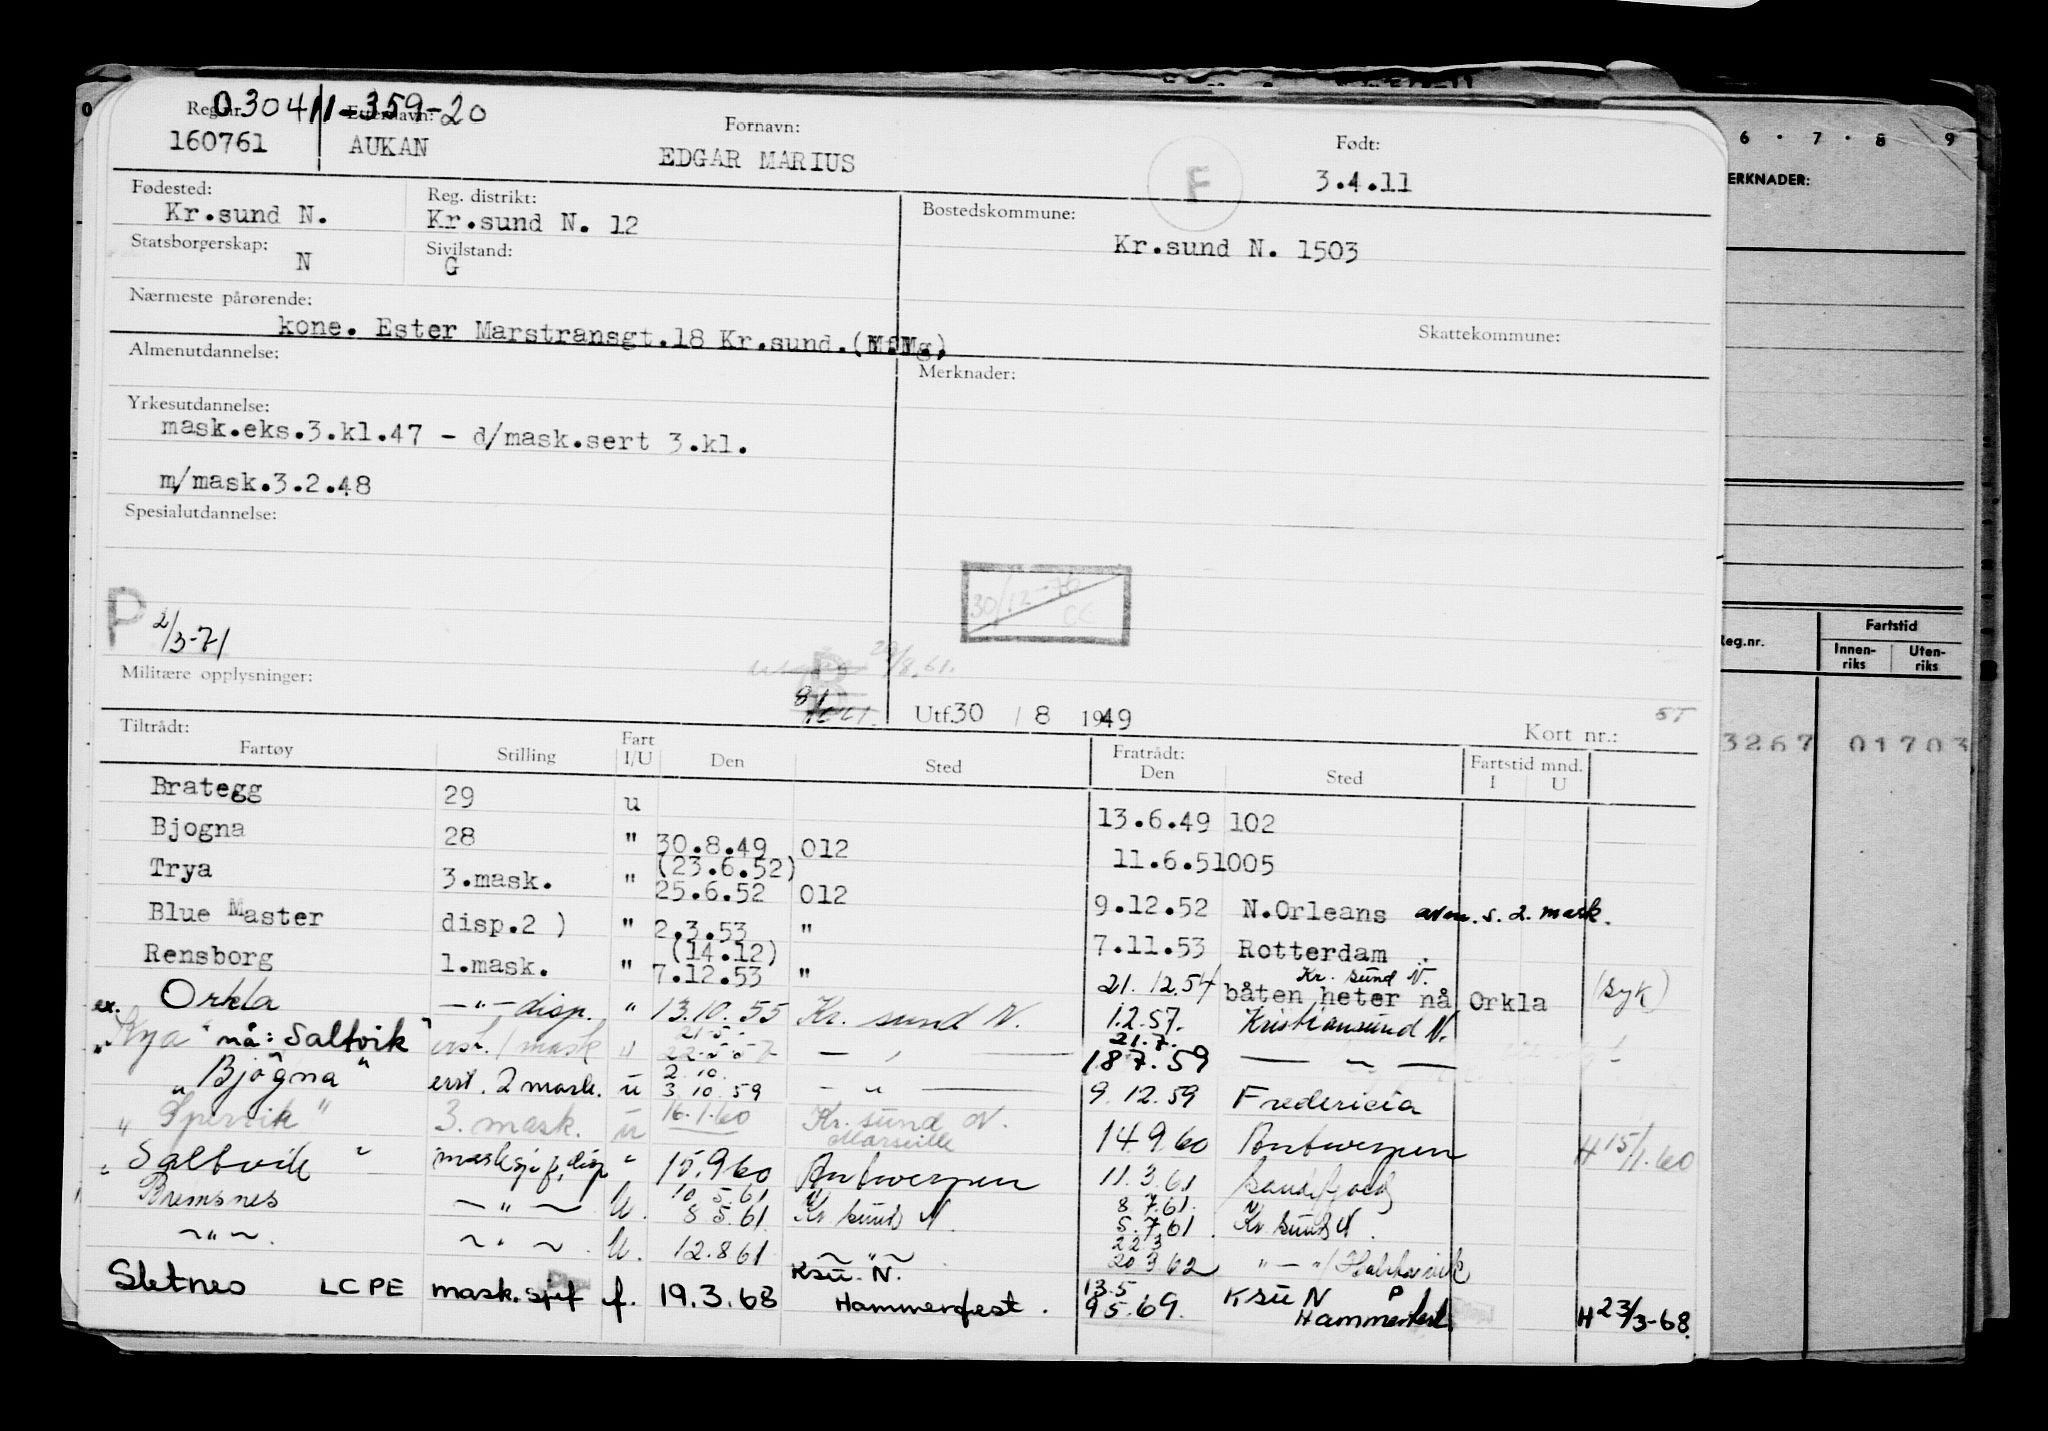 030411-359-20
Reg.nr. Etternavn: Fornavn: Født:
160761 AUKAN EDGAR MARIUS F 3.4.11
Fødested: Reg. distrikt: Bostedskommune:
Kr.sund N. Kr.sund N. 12 Kr.sund N. 1503
Statsborgerskap: Sivilstand:
N G
Nærmeste pårørende: Skattekommune:
kone. Ester Marstransgt.18 Kr.sund.
Almenutdannelse: Merknader:
Yrkesutdannelse:
mask.eks.3.kl.47 - d/mask.sert 3.kl.
m/mask.3.2.48
Spesialutdannelse:
30/12-76
P 2/3-71
29/8.61.
Militære opplysninger:
8/
Utf.30 / 8 1949 ST
Tiltrådt: Fratrådt: Kort nr.:
Fartøy Stilling Fart I/U Den Sted Den Sted Fartstid mnd. I U
Brategg 29 u 13.6.49 102
Bjogna 28 " 30.8.49 012 11.6.51 005
(23.6.52)
Trya 3.mask. " 25.6.52 012 9.12.52 N.Orleans avm. s. 2. mask.
Blue Master disp.2 ) " 2.3.53 " 7.11.53 Rotterdam.
(14.12)
Rensborg 1.mask. " 7.12.53 " 21.12.54 Kr. sund N. båten heter nå Orkla (syk)
ex. Orkla —"— disp. " 13.10.55 Kr. sund N. 1.2.57. Kristiansund N.
21.5. 21.7.
"Kya" nå: Saltvik" erst. 1 mask " 22.5.57 — " — 18.7.59 — " —
2.10.
"Bjøgna" erst. 2 mask. u 3 10.59 — " — 9.12.59 Fredericia
"Spervik" 3. mask. u 16.1.60 Kr. sund N. Marseille 14.9.60 Antwerpen H 15/1.60
"Saltvik" masksjef, disp " 15.9.60 Antwerpen 11.3.61 Sandefjord
10.5.61 8 7.61.
Bremsnes — " — U. 8 5.61 Kr sund N. 5.7.61. Kr. sund N.
22 3
— " —. — " — U. 12.8.61 — " — 20 3 62 " — "
Sletnes LCPE mask.sjef f. 19.3.68 Ksu. N. Hammerfest. 13.5 9 5.69. Ksu N P Hammerfest. H 23/3-68.
0 6 . 7 . 8 9
ERKNADER:
Reg.nr. Fartstid
Innen-riks Uten-riks
3267 01703